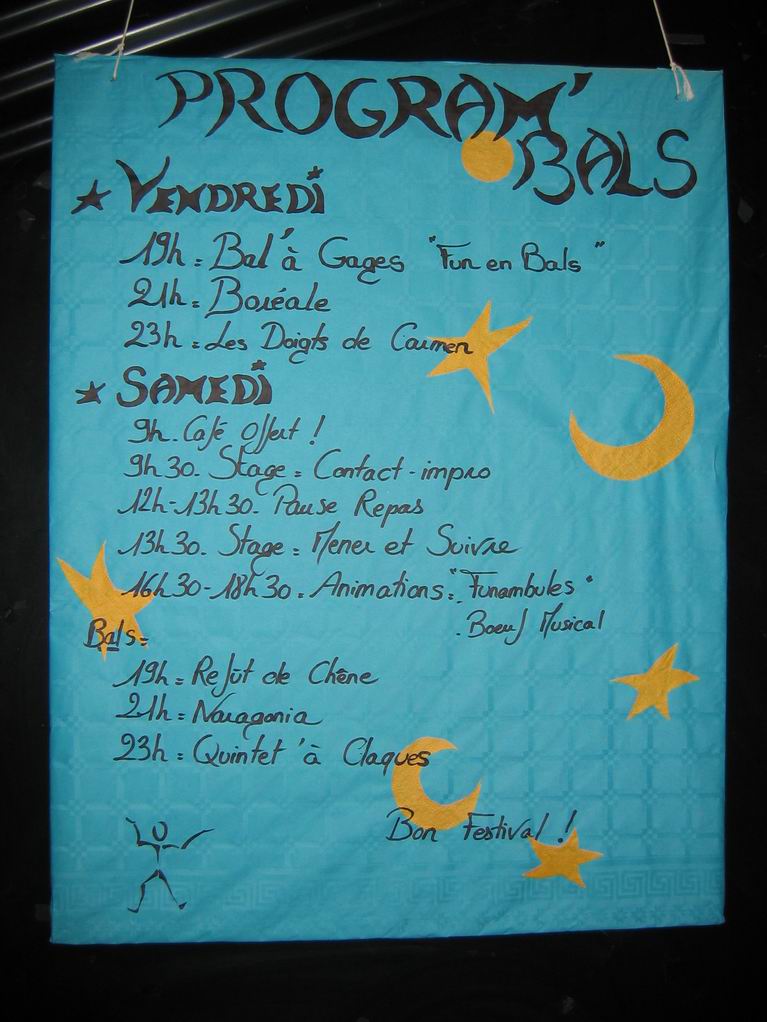 PROGRAM'
BALS
VENDREDI
19h = Bal'à Gages "Fun en Bals"
21h = Boréale
23h = Les Doigts de Carmen
SAMEDI
9h. Café Offert !
9h30. Stage = Contact-impro
12h-13h30. Pause Repas
13h30. Stage = Mener et Suivre
16h30-18h30 = Animations = . "Funambules"
. Boeuf Musical
Bals =
19h = Refût de Chêne
21h = Naragonia
23h = Quintet 'à Claques
Bon Festival !